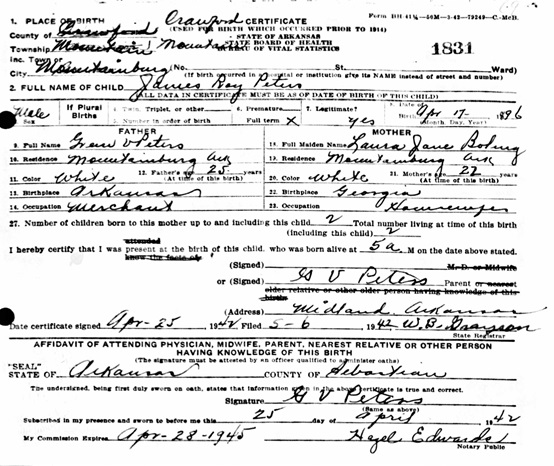 Crawford CERTIFICATE
Form BH-41¼—50M—3-42—79249—C.-McD.
1. PLACE OF BIRTH
(USED FOR BIRTH WHICH OCCURRED PRIOR TO 1914)
County of Crawford
STATE OF ARKANSAS
Township Mountain Mountain
STATE BOARD OF HEALTH
BUREAU OF VITAL STATISTICS
1831
Inc. Town or
City Mountainburg (No. St. Ward)
(If birth occurred in a hospital or institution give its NAME instead of street and number)
2. FULL NAME OF CHILD James Roy Peters
(ALL DATA IN CERTIFICATE MUST BE AS OF DATE OF BIRTH OF THIS CHILD)
Male
Sex
If Plural Births
4. Twin, Triplet, or other
5. Number in order of birth
6. Premature
Full term X
7. Legitimate?
yes
8. Date of Birth Apr 17- 1896
(Month, Day, Year)
FATHER
MOTHER
9. Full Name Peters
18. Full Maiden Name Laura Jane
10. Residence Mountainburg Ark
19. Residence Mountainburg Ark
11. Color White 12. Father's age 25 years
(At time of this birth)
20. Color White 21. Mother's age 22 years
(At time of this birth)
13. Birthplace Arkansas
22. Birthplace Georgia
14. Occupation Merchant
23. Occupation Housewife
27. Number of children born to this mother up to and including this child 2 Total number living at time of this birth
(including this child) 2
attended
I hereby certify that I was present at the birth of this child. who was born alive at 5 a M on the above stated.
know the facts of
(Signed) M. D. or Midwife
or (Signed) G V Peters Parent or nearest
older relative or other older person having knowledge of this
birth
(Address) Midland Arkansas
Date certificate signed Apr-25 1942 Filed 5-6 1942 W. B. Grayson
State Registrar
AFFIDAVIT OF ATTENDING PHYSICIAN, MIDWIFE, PARENT, NEAREST RELATIVE OR OTHER PERSON
HAVING KNOWLEDGE OF THIS BIRTH
(The signature must be attested by an officer qualified to administer oaths)
"SEAL"
STATE OF Arkansas COUNTY OF Sebastian
The undersigned, being first duly sworn on oath, states that information given in the above certificate is true and correct.
Signature G V Peters
(Same as above)
Subscribed in my presence and sworn to before me this 25 day of April 1942
My Commission Expires Apr-28-1945 Hazel Edwards
Notary Public